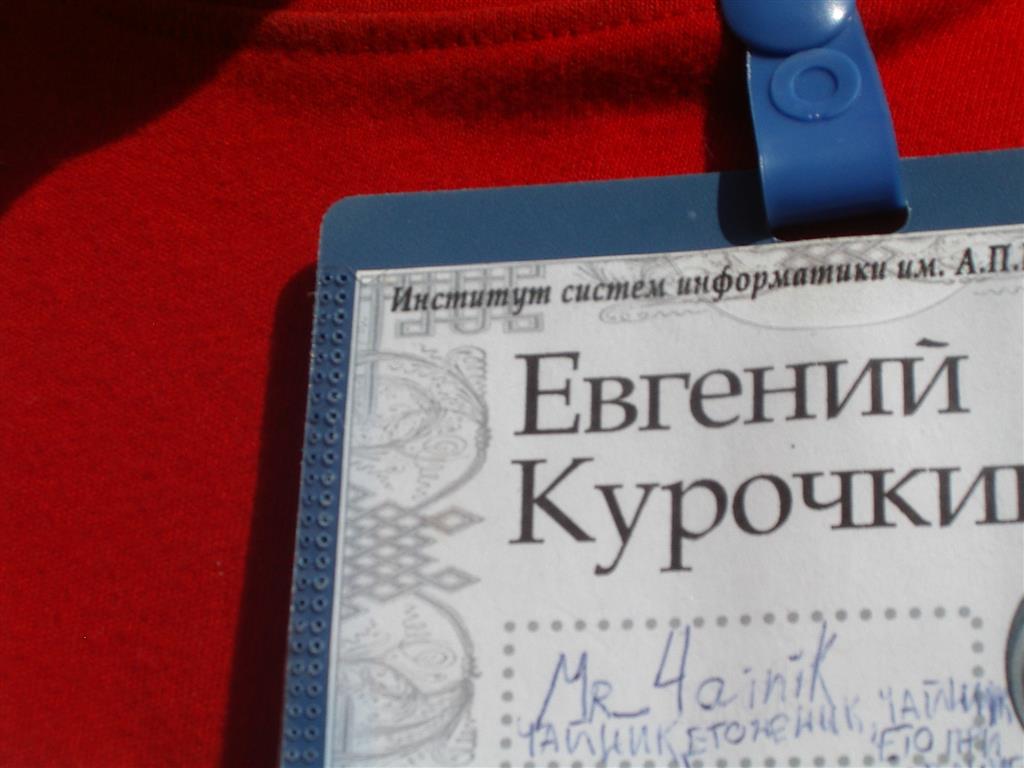 Институт систем информатики им. А.П.
Евгений
Курочки
Mr_4ainiK
ЧАЙНИК ЕТОЖЕНИК, ЧАЙНИК